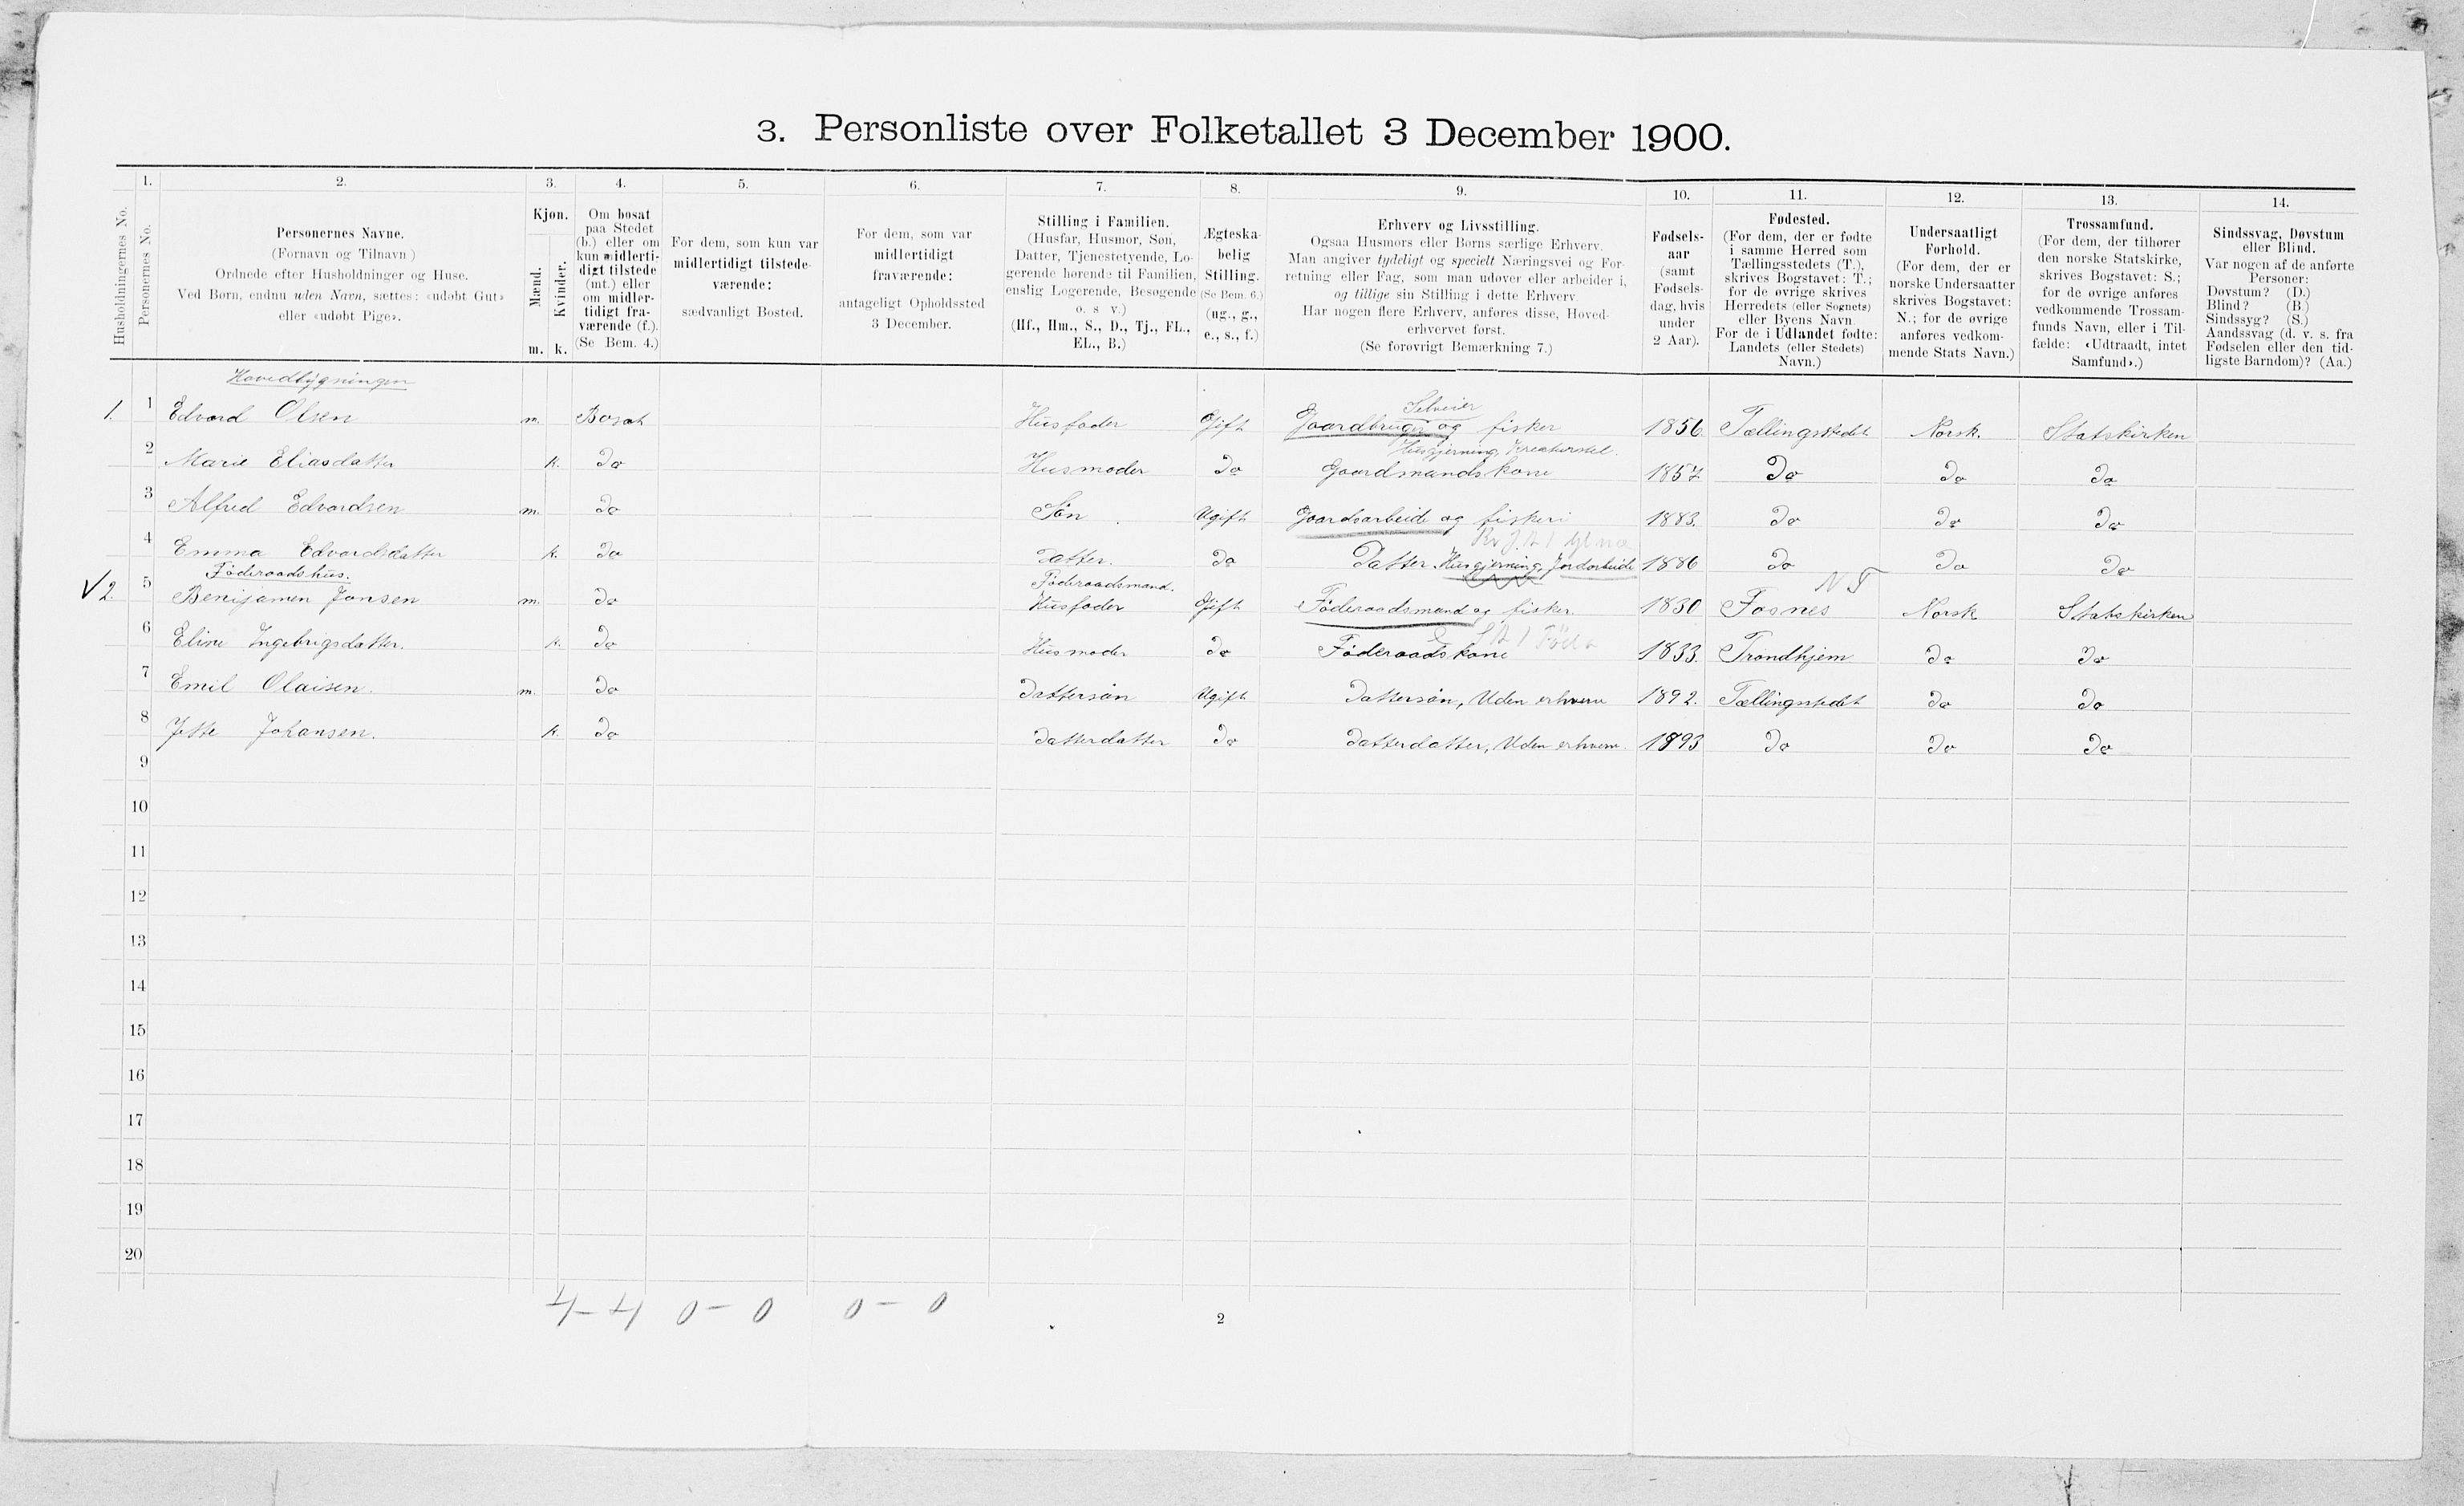 3. Personliste over Folketallet 3 December 1900.
1. 2. 3. 4. 5. 6. 7. 8. 9. 10. 11. 12. 13. 14.
Husholdningernes No.
Personernes No.
Personernes Navne.
(Fornavn og Tilnavn)
Ordnede efter Husholdninger og Huse.
Ved Børn, endnu uden Navn, sættes: «udøbt Gut»
eller «udøbt Pige».
Kjøn.
Mænd.
Kvinder.
m. k.
Om bosat
paa Stedet
(b.) eller om
kun midlerti-
digt tilstede
(mt.) eller
om midler-
tidigt fra-
værende (f.).
(Se Bem. 4.)
For dem, som kun var
midlertidigt tilstede-
værende:
sædvanligt Bosted.
For dem, som var
midlertidigt
fraværende:
antageligt Opholdssted
3 December.
Stilling i Familien.
(Husfar, Husmor, Søn,
Datter, Tjenestetyende, Lo-
gerende hørende til Familien,
enslig Logerende, Besøgende
o. s. v.)
(Hf., Hm., S., D., Tj., FL.,
EL., B.)
Ægteska-
belig
Stilling.
(Se Bem. 6.)
(ug., g.,
e., s., f.)
Erhverv og Livsstilling.
Ogsaa Husmors eller Børns særlige Erhverv.
Man angiver tydeligt og specielt Næringsvei og For-
retning eller Fag, som man udøver eller arbeider i,
og tillige sin Stilling i dette Erhverv.
Har nogen flere Erhverv, anføres disse, Hoved-
erhvervet først.
(Se forøvrigt Bemærkning 7.)
Fødsels-
aar
(samt
Fødsels-
dag, hvis
under
2 Aar).
Fødested.
(For dem, der er fødte
i samme Herred som
Tællingsstedets (T.),
skrives Bogstavet: T.;
for de øvrige skrives
Herredets (eller Sognets)
eller Byens Navn.
For de i Udlandet fødte:
Landets (eller Stedets)
Navn.)
Undersaatligt
Forhold.
(For dem, der er
norske Undersaatter
skrives Bogstavet:
N.; for de øvrige
anføres vedkom-
mende Stats Navn.)
Trossamfund.
(For dem, der tilhører
den norske Statskirke,
skrives Bogstavet: S.;
for de øvrige anføres
vedkommende Trossam-
funds Navn, eller i Til-
fælde: «Udtraadt, intet
Samfund».)
Sindssvag, Døvstum
eller Blind.
Var nogen af de anførte
Personer:
Døvstum? (D.)
Blind? (B.)
Sindssyg? (S.)
Aandssvag (d. v. s. fra
Fødselen eller den tid-
ligste Barndom)? (Aa.)
Hovedbygningen
Selveier
1. 1 Edvard Olsen m. Bosat Husfader Gift Gaardbruger og fisker 1856. Tællingsstedet Norsk. Statskirken
Husgjerning, Kreaturstel.
2 Marie Eliasdatter k. Do Husmoder Do Gaardmandskone 1857. Do Do Do
3 Alfred Edvardsen m. Do Søn Ugift Gaardsarbeide og fiskeri 1883. Do Do Do
4 Emma Edvardsdatter k. Do Datter. Do Datter. Husgjerning, Jordarbeide 1886 Do Do Do
Föderaadshus. Föderaadsmand. N T
2. 5 Benijamen Jonsen m. Do Husfader Gift Föderaadsmand og fisker. 1830 Fosnes Norsk Statskirken
6 Eline Ingebrigsdatter. k. Do Husmoder Do Föderaadskone 1833. Trondhjem Do Do
7 Emil Olaisen. m. Do Dattersön Ugift Dattersön, Uden erhverv 1892. Tællingsstedet Do Do
8 Jette Johansen. k. Do Datterdatter Do Datterdatter, Uden erhverv. 1893 Do Do Do
9
10
11
12
13
14
15
16
17
18
19
20
4 - 4 0 - 0 0 - 0
2